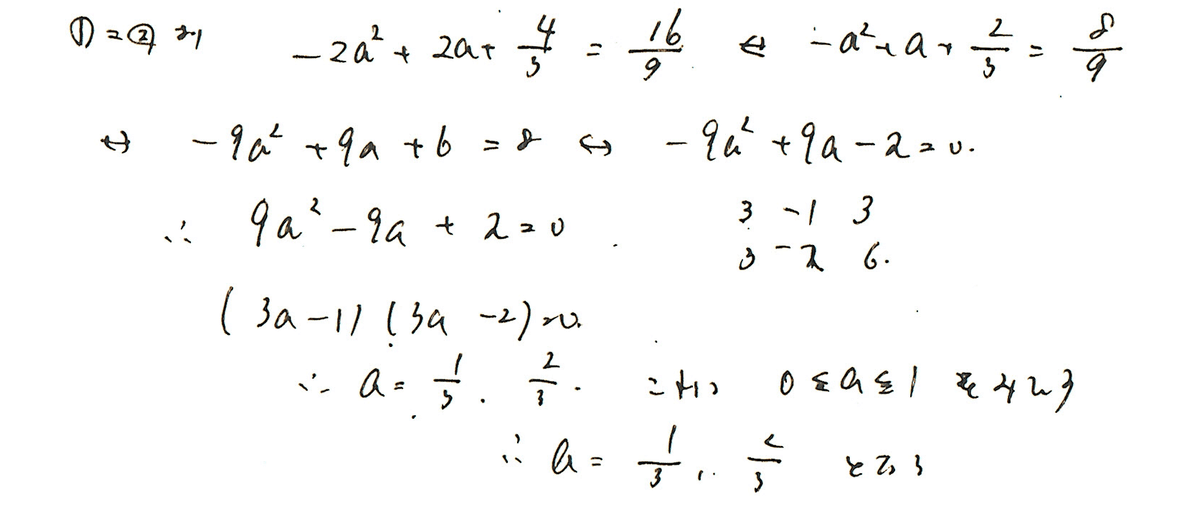 ①=②より -2a²+2a+4/3 = 16/9 ⇔ -a²+a+2/3 = 8/9
⇔ -9a²+9a+6=8 ⇔ -9a²+9a-2=0.
∴ 9a²-9a+2=0.
3 -1 3
3 -2 6.
(3a-1)(3a-2)=0.
∴ a=1/3. 2/3. これは 0≦a≦1 をみたす
∴ a=1/3, 2/3 となる